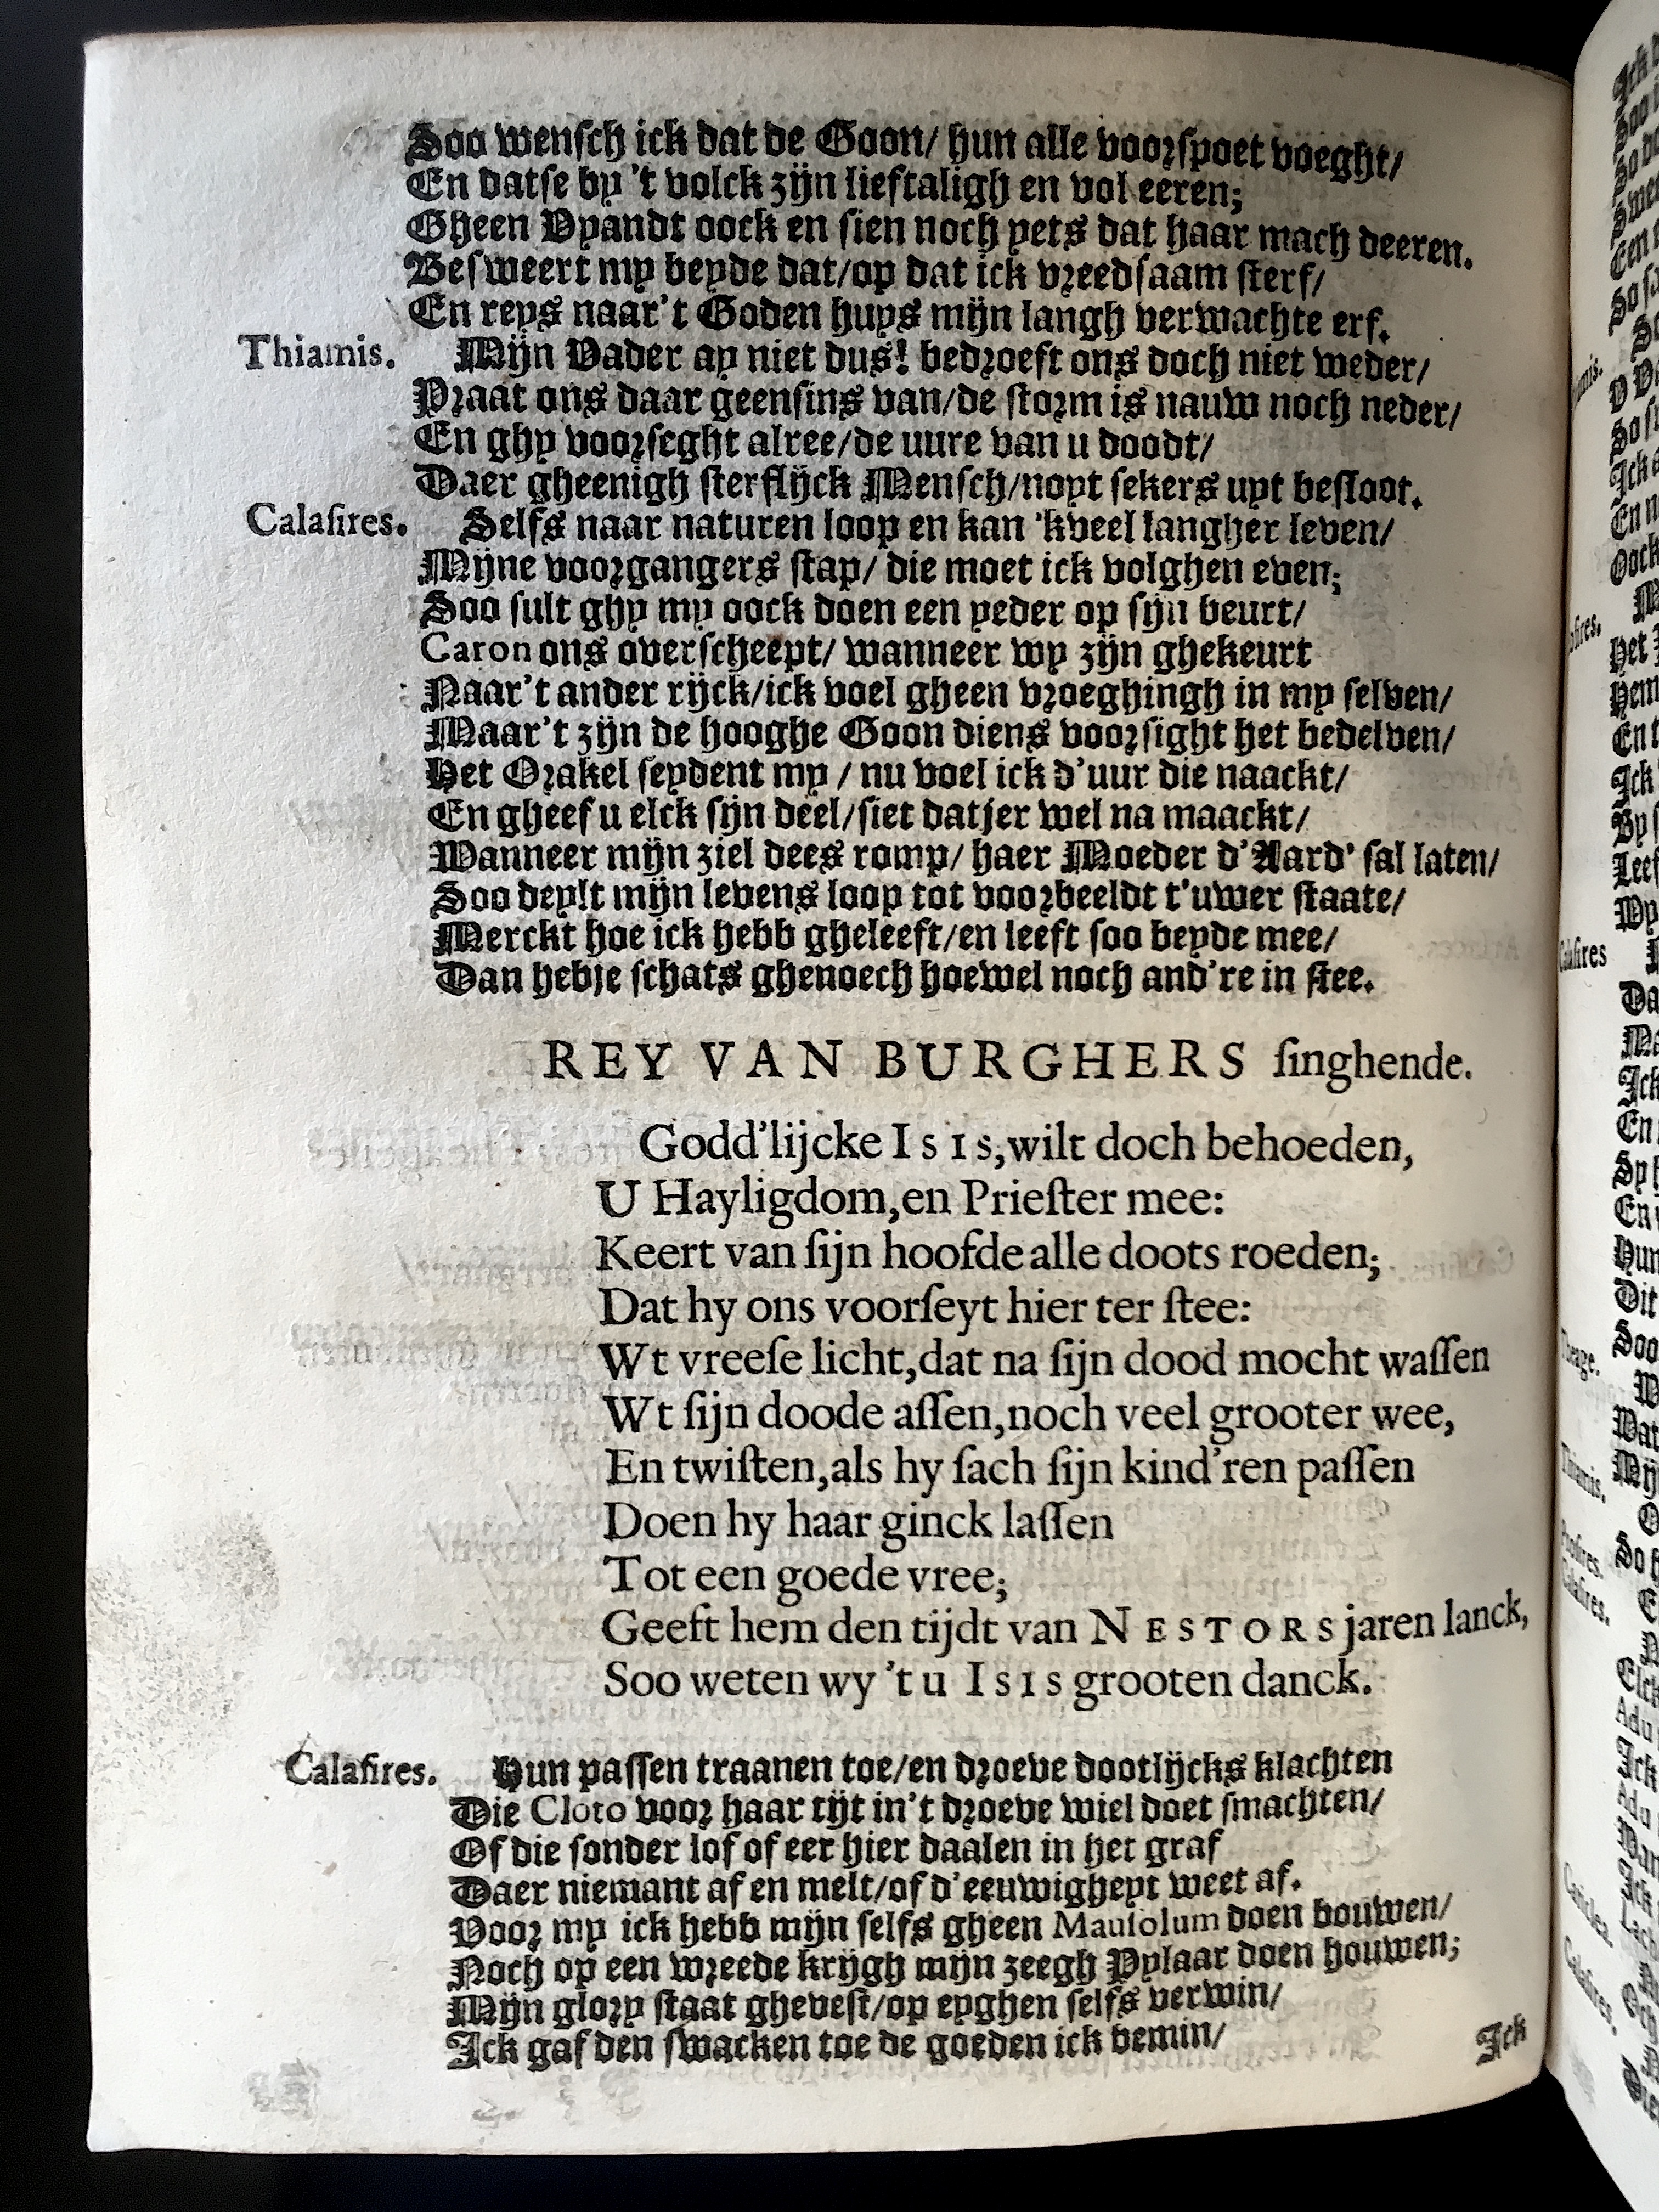 Soo wensch ick dat de Goon/ hun alle voorspoet voeght/
En datse by 't volck zijn lieftaligh en vol eeren;
Gheen Vyandt oock en sien noch yets dat haar mach deeren.
Besweert my beyde dat/op dat ick vreedsaam sterf/
En reys naar't Goden huys mijn langh verwachte erf.
Thiamis. Mijn Vader ay niet dus! bedroeft ons doch niet weder/
Praat ons daar geensins van/de storm is nauw noch neder/
En ghy voorseght alree/de uure van u doodt/
Daer gheenigh sterflijck Mensch/noyt sekers uyt besloot.
Calasires. Selfs naar naturen loop en kan 'kveel langher leven/
Mijne voorgangers stap/ die moet ick volghen even;
Soo sult ghy my oock doen een yeder op sijn beurt/
Caron ons overscheept/ wanneer wy zijn ghekeurt
Naar't ander rijck/ick voel gheen vroeghingh in my selven/
Maar't zijn de hooghe Goon diens voorsight het bedelven/
Het Orakel seydent my / nu voel ick d'uur die naackt/
En gheef u elck sijn deel/siet datjer wel na maackt/
Wanneer mijn ziel dees romp/ haer Moeder d'Aard' sal laten/
Soo deylt mijn levens loop tot voorbeeldt t'uwer staate/
Merckt hoe ick hebb gheleeft/en leeft soo beyde mee/
Dan hebje schats ghenoech hoewel noch and're in stee.
REY VAN BURGHERS singhende.
Godd'lijcke ISIS,wilt doch behoeden,
U Hayligdom,en Priester mee:
Keert van sijn hoofde alle doots roeden;
Dat hy ons voorseyt hier ter stee:
Wt vreese licht,dat na sijn dood mocht wassen
Wt sijn doode assen,noch veel grooter wee,
En twisten,als hy sach sijn kind'ren passen
Doen hy haar ginck lassen
Tot een goede vree;
Geeft hem den tijdt van NESTORS jaren lanck,
Soo weten wy 't u ISIS grooten danck.
Calasires. Hun passen traanen toe/en droeve dootlijcks klachten
Die Cloto voor haar tijt in't droeve wiel doet smachten/
Of die sonder lof of eer hier daalen in het graf
Daer niemant af en melt/of d'eeuwigheyt weet af.
Voor my ick hebb mijn selfs gheen Mausolum doen bouwen/
Noch op een wreede krijgh mijn zeegh Pylaar doen houwen;
Mijn glory staat ghevest/op eyghen selfs verwin/
Ick gaf den swacken toe de goeden ick bemin/
Ick